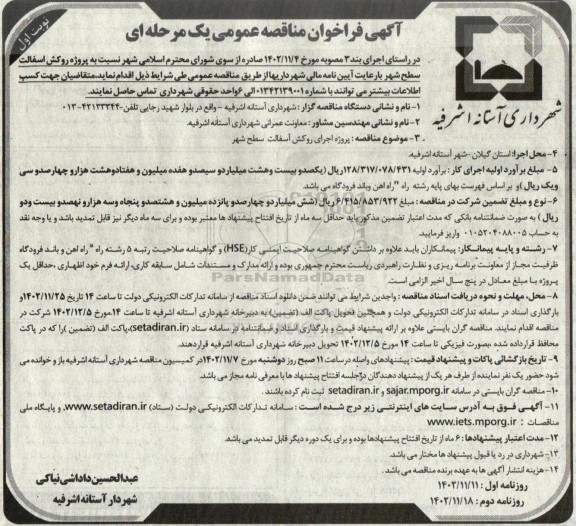 نوبت اول
آگهی فراخوان مناقصه عمومی یک مرحله ای
شهرداری آستانه اشرفیه
در راستای اجرای بند ۳ مصوبه مورخ ۱۴۰۲/۱۱/۴ صادره از سوی شورای محترم اسلامی شهر نسبت به پروژه روکش اسفالت
سطح شهر با رعایت آیین نامه مالی شهرداریها از طریق مناقصه عمومی طی شرایط ذیل اقدام نماید، متقاضیان جهت کسب
اطلاعات بیشتر می توانند با شماره ۰۱۳۴۲۱۳۹۰۰۱ الی ۴ واحد حقوقی شهرداری تماس حاصل نمایند.
۱- نام و نشانی دستگاه مناقصه گزار: شهرداری آستانه اشرفیه - واقع در بلوار شهید رجایی تلفن: ۴۲۱۳۳۳۴۴-۰۱۳
۲- نام و نشانی مهندسین مشاور: معاونت عمرانی شهرداری آستانه اشرفیه.
۳- موضوع مناقصه: پروژه اجرای روکش آسفالت سطح شهر
۴- محل اجرا: استان گیلان - شهر آستانه اشرفیه.
۵- مبلغ برآورد اولیه اجرای کار: برآورد اولیه ۱۲۸/۳۱۷/۰۷۸/۴۳۱ ریال (یکصدو بیست وهشت میلیارد و سیصدو هفده میلیون و هفتادوهشت هزارو چهارصدو سی
ویک ریال) و بر اساس فهرست بهای پایه رشته راه "راه اهن وباند فرودگاه می باشد.
۶- نوع و مبلغ تضمین شرکت در مناقصه: مبلغ ۶/۴۱۵/۸۵۳/۹۲۲ ریال (شش میلیارد و چهارصدو پانزده میلیون و هشتصدو پنجاه وسه هزارو نهصدو بیست ودو
ریال) به صورت ضمانتنامه بانکی که مدت اعتبار تضمین مذکور باید حداقل سه ماه از تاریخ افتتاح پیشنهاد ها معتبر بوده و برای سه ماه دیگر نیز قابل تمدید باشد و یا وجه نقد
به حساب ۰۱۰۵۲۰۴۰۸۸۰۰۵ واریز فرمایید.
۷- رشته و پایه پیمانکار: پیمانکاران باید علاوه بر داشتن گواهینامه صلاحیت ایمنی کار(HSE) و گواهینامه صلاحیت رتبه ۵ رشته راه "راه اهن و باند فرودگاه
ظرفیت مجاز از معاونت برنامه ریزی و نظارت راهبردی ریاست محترم جمهوری بوده و ارائه مدارک و مستندات شامل سابقه کاری، ارائه فرم خود اظهاری، حداقل یک
پروژه با مبلغ معادل در پنج سال اخیر الزامی است.
۸- محل، مهلت و نحوه دریافت اسناد مناقصه: واجدین شرایط می توانند ضمن دانلود اسناد مناقصه از سامانه تدارکات الکترونیکی دولت تا ساعت ۱۴ تاریخ ۱۴۰۲/۱۱/۲۵ و
بارگذاری اسناد در سامانه تدارکات الکترونیکی دولت و همچنین تحویل پاکت الف (تضمین) به دبیرخانه شهرداری آستانه اشرفیه تا ساعت ۱۴ مورخ ۱۴۰۲/۱۲/۵ شرکت در
مناقصه اقدام نمایند. مناقصه گران بایستی علاوه بر ارائه پیشنهاد قیمت و بارگذاری اسناد و ضمانتنامه در سامانه ستاد (setadiran.ir)، پاکت الف (تضمین) را که در پاکت
محافظ قرارداده شده بصورت فیزیکی تا ساعت ۱۴ مورخ ۱۴۰۲/۱۲/۵ تحویل دبیرخانه شهرداری آستانه اشرفیه قراردهند.
۹- تاریخ بازگشائی پاکات و پیشنهاد قیمت: پیشنهادهای واصله در ساعت ۱۱ صبح روز دوشنبه مورخ ۱۴۰۲/۱۲/۷ در کمیسیون مناقصه شهرداری آستانه اشرفیه باز و خوانده می
شود حضور یک نفر نماینده از طرف هر یک از پیشنهاد دهندگان در جلسه افتتاح پیشنهاد ها با معرفی نامه مجاز می باشد.
۱۰- مناقصه گران بایستی در سامانه sajar.mporg.ir و setadiran.ir ثبت نام کرده باشند.
۱۱- آگهی فوق به آدرس سایت های اینترنتی زیر درج شده است: سامانه تدارکات الکترونیکی دولت (ستاد) www.setadiran.ir، و پایگاه ملی
مناقصات: www.iets.mporg.ir
۱۲- مدت اعتبار پیشنهادها: ۶ ماه از تاریخ افتتاح پیشنهادها بوده و برای یک دوره دیگر قابل تمدید می باشد.
۱۳- شهرداری در رد یا قبول پیشنهاد ها مختار می باشد.
۱۴- هزینه انتشار آگهی ها به عهده برنده مناقصه می باشد.
روزنامه اول: ۱۴۰۲/۱۱/۱۱
روزنامه دوم: ۱۴۰۲/۱۱/۱۸
عبدالحسین داداشی نیاکی
شهردار آستانه اشرفیه
ParsNamadData